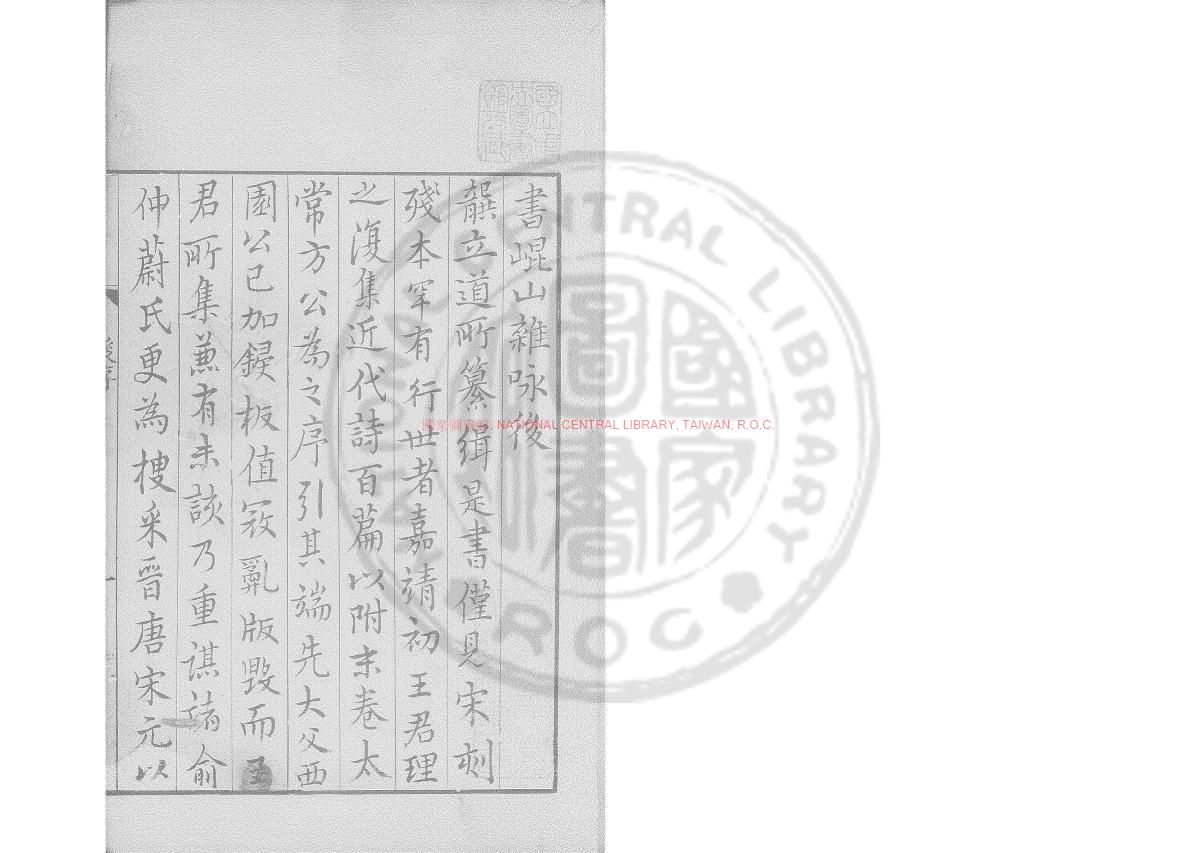 書崐山雜咏後
龔立道所纂緝是書僅見宋刻
殘本罕有行世者嘉靖初王君理
之復集近代詩百篇以附末卷太
常方公為之序引其端先大父西
園公已加鋟板值寇亂版毀而王
君所集蒐有未該乃重諆諸俞
仲蔚氏更為搜采晉唐宋元以
後序
一
國家圖書館, NATIONAL CENTRAL LIBRARY, TAIWAN, R.O.C.
NATIONAL CENTRAL LIBRARY
R·O·C
國家圖書